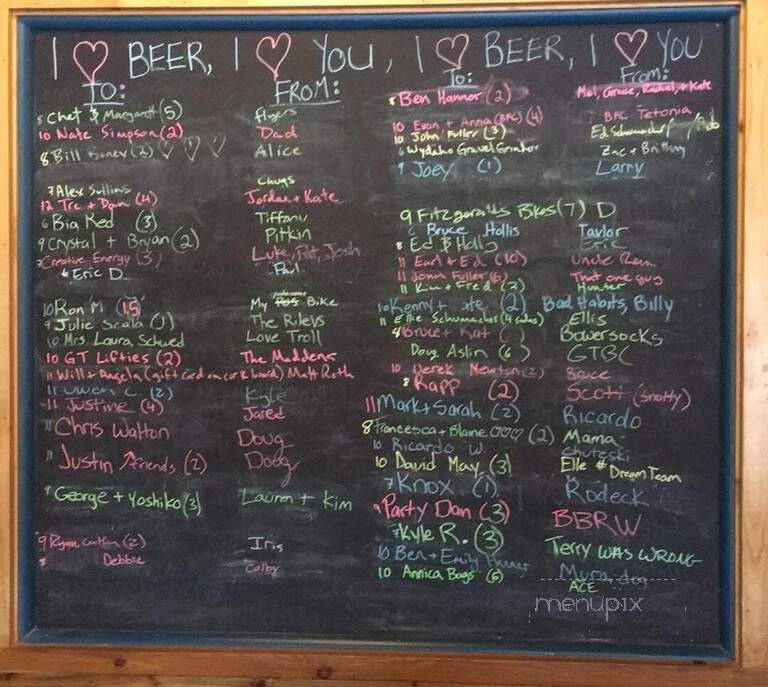 I ♡ BEER, I ♡ YOU, I ♡ BEER, I ♡ YOU
TO: FROM:
8 Chet & Margarett (5) Flyers
10 Nate Simpson (2) Dad
8 Bill Boney (3) ♡ ♡ ♡ Alice
7 Alex Sullins Chugs
12 Tre + Dan (4) Jordan + Kate
6 Big Red (3) Tiffany
9 Crystal + Bryan (2) Pitkin
Creative Energy (3) Luke, Pat, Josh
6 Eric D. Paul
10 Ron M (15) My Bike
9 Julie Scala (1) The Rileys
10 Mrs. Laura Schued Love Troll
10 GT Lifties (2) The Maddens
11 Will + Angela (gift card on cork board) Matt Roth
11 Owen C. (2) Kyle
11 Justine (4) Jared
11 Chris Walton Doug
11 Justin & friends (2) Doug
9 George + Yoshiko (3) Lauren + Kim
9 Ryan, Caitlin (2) Iris
8 Debbie Colby
To: From:
8 Ben Hanner (2) Mel, Grace, Rachel, + Kate
10 Evan + Anna (BFC) (4) BFC Tetonia
10 John Fuller (3) Ed Schumacher
6 Wydaho Gravel Grinder Zac + Brittany
9 Joey (1) Larry
9 Fitzgerald's Bikes (7) D
6 Bruce Hollis Taylor
8 Ed & Holly Eric
11 Earl + Ed (10) Uncle
11 John Fuller (6) That one guy
11 Kim + Fred (2) Hunter
10 Kenny + (2) Bad Habits, Billy
11 Ellie Schumacher (4 sales) Ellis
8 Bruce + Kat ( ) Bowersocks
Doug Aslin (6) GTBC
10 Derek Newton (2) Bruce
8 Rapp (2) Scott (Snotty)
11 Mark + Sarah (2) Ricardo
8 Francesca + Blaine ♡♡♡ (2) Mama
10 Ricardo W. Chuteski
10 David May (3) Elle # Dream Team
7 Knox (1) Rodeck
9 Party Dan (3) BBRW
7 Kyle R. (3) Terry WAS WRONG
10 Ben + Emily Hanner Mura dog
10 Annica Bags (5) ACE
menupix